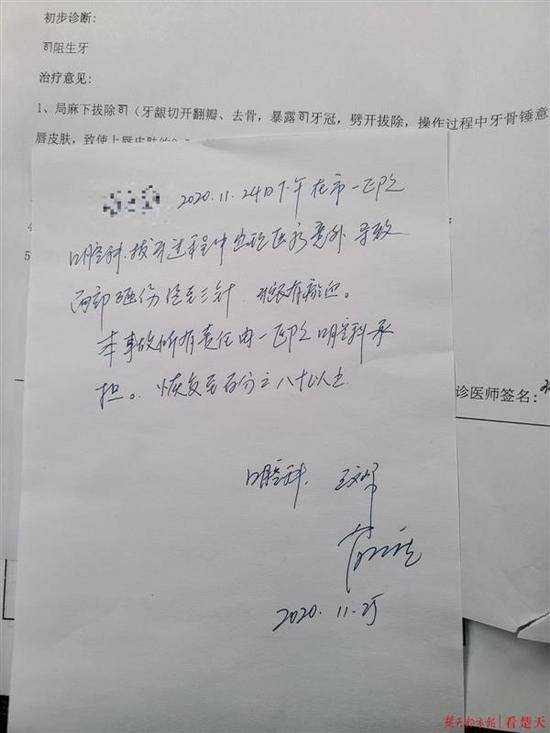 初步诊断:
阻生牙
治疗意见:
1、局麻下拔除(牙龈切开翻瓣、去骨，暴露牙冠，劈开拔除，操作过程中牙骨锤意
唇皮肤，致使上唇皮肤
2020.11.24日下午在市一医院
口腔科拔牙过程中出现医疗意外导致
面部砸伤缝三针
本事故所有责任由一医院口腔科承
担。恢复至百分之八十以上
诊医师签名:
口腔科
2020.11.25
楚天都市报|看楚天